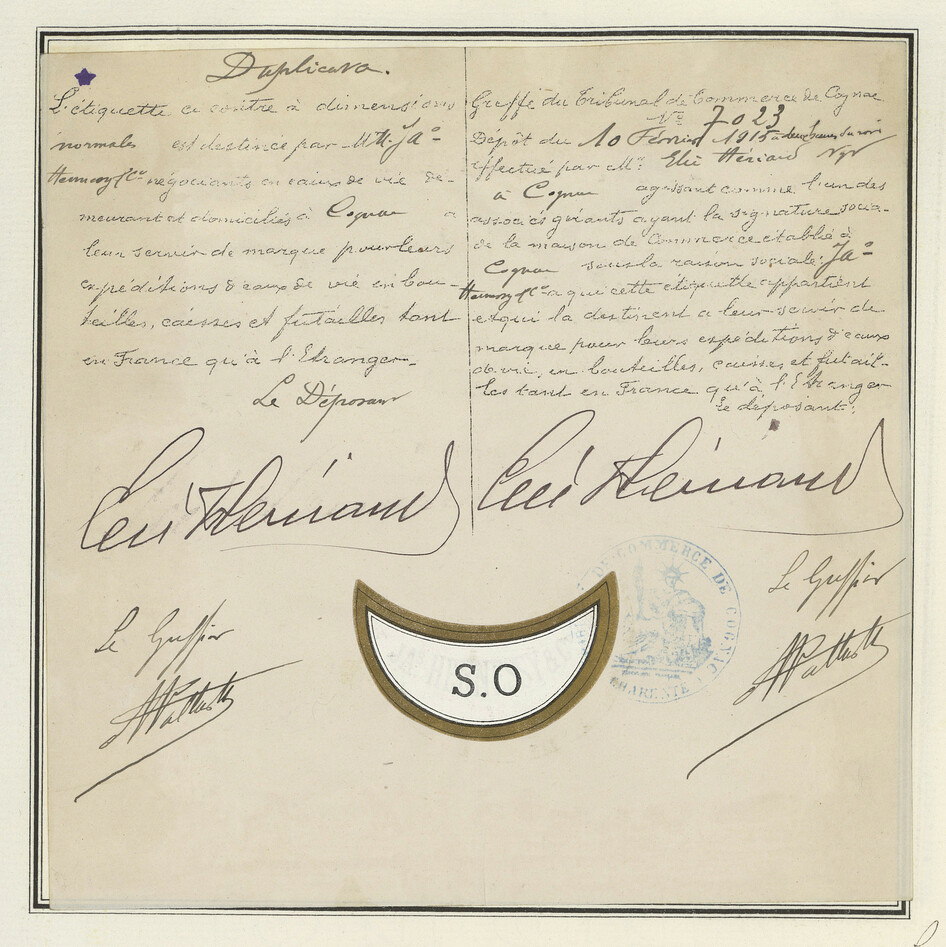 Duplicata.
L'étiquette ci contre à dimensions
normales est destinée par MM. Jas
Hennessy & Co négociants en eaux de vie de-
meurant et domiciliés à Cognac a
leur servir de marque pour leurs
expéditions d'eaux de vie en bou-
teilles, caisses et futailles tant
en France qu'à l'Etranger.
Le Déposant
Greffe du Tribunal de Commerce de Cognac
No 7023
Dépôt du 10 Février 1915 à deux heures du soir
effectué par Mr. Elie Hériard Ngt
à Cognac agissant comme l'un des
associés gérants ayant la signature socia-
de la maison de Commerce établie à
Cognac sous la raison sociale: Jas
Hennessy & Co a qui cette étiquette appartient
et qui la destinent a leur servir de
marque pour leurs expéditions d'eaux
de vie, en bouteilles, caisses et futail-
les tant en France qu'à l'Etranger
le déposant:
Elie Hériard
Elie Hériard
Le Greffier
Le Greffier
DE COMMERCE DE COGNAC
CHARENTE
S.O